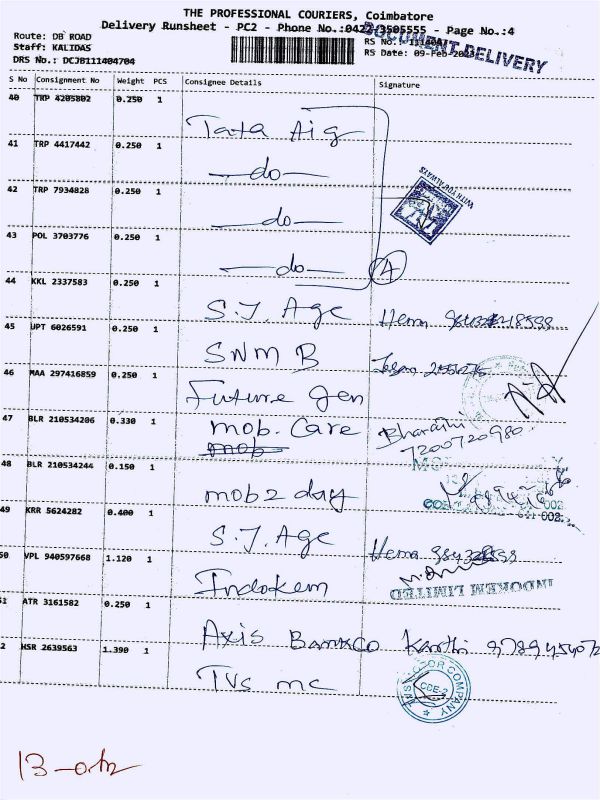 THE PROFESSIONAL COURIERS, Coimbatore
Delivery Runsheet - PC2 - Phone No.:0422-3505555 - Page No.:4
Route: DB ROAD
Staff: KALIDAS
DRS No.: DCJB111404704
RS No.:
RS Date: 09-Feb-2023
DOCUMENT DELIVERY
S No Consignment No Weight PCS Consignee Details Signature
40 TRP 4205802 0.250 1
Tata Aig
41 TRP 4417442 0.250 1
—do—
WITH YOU ALWAYS
42 TRP 7934828 0.250 1
—do—
43 POL 3703776 0.250 1
—do— A
44 KKL 2337583 0.250 1
S.J. Age Hema
45 UPT 6026591 0.250 1
SNM B
46 MAA 297416859 0.250 1
Future Gen
47 BLR 210534206 0.330 1
mob. Care Bharathi
mob 7200720980
48 BLR 210534244 0.150 1
mob 2 day
002
49 KRR 5624282 0.400 1
S.J. Age Hema
50 VPL 940597668 1.120 1
Indokem INDOKEM LIMITED
51 ATR 3161582 0.250 1
Axis Bankco Karthi
2 HSR 2639563 1.390 1
TVS mc
TVS MOTOR COMPANY
CDE-2
13-